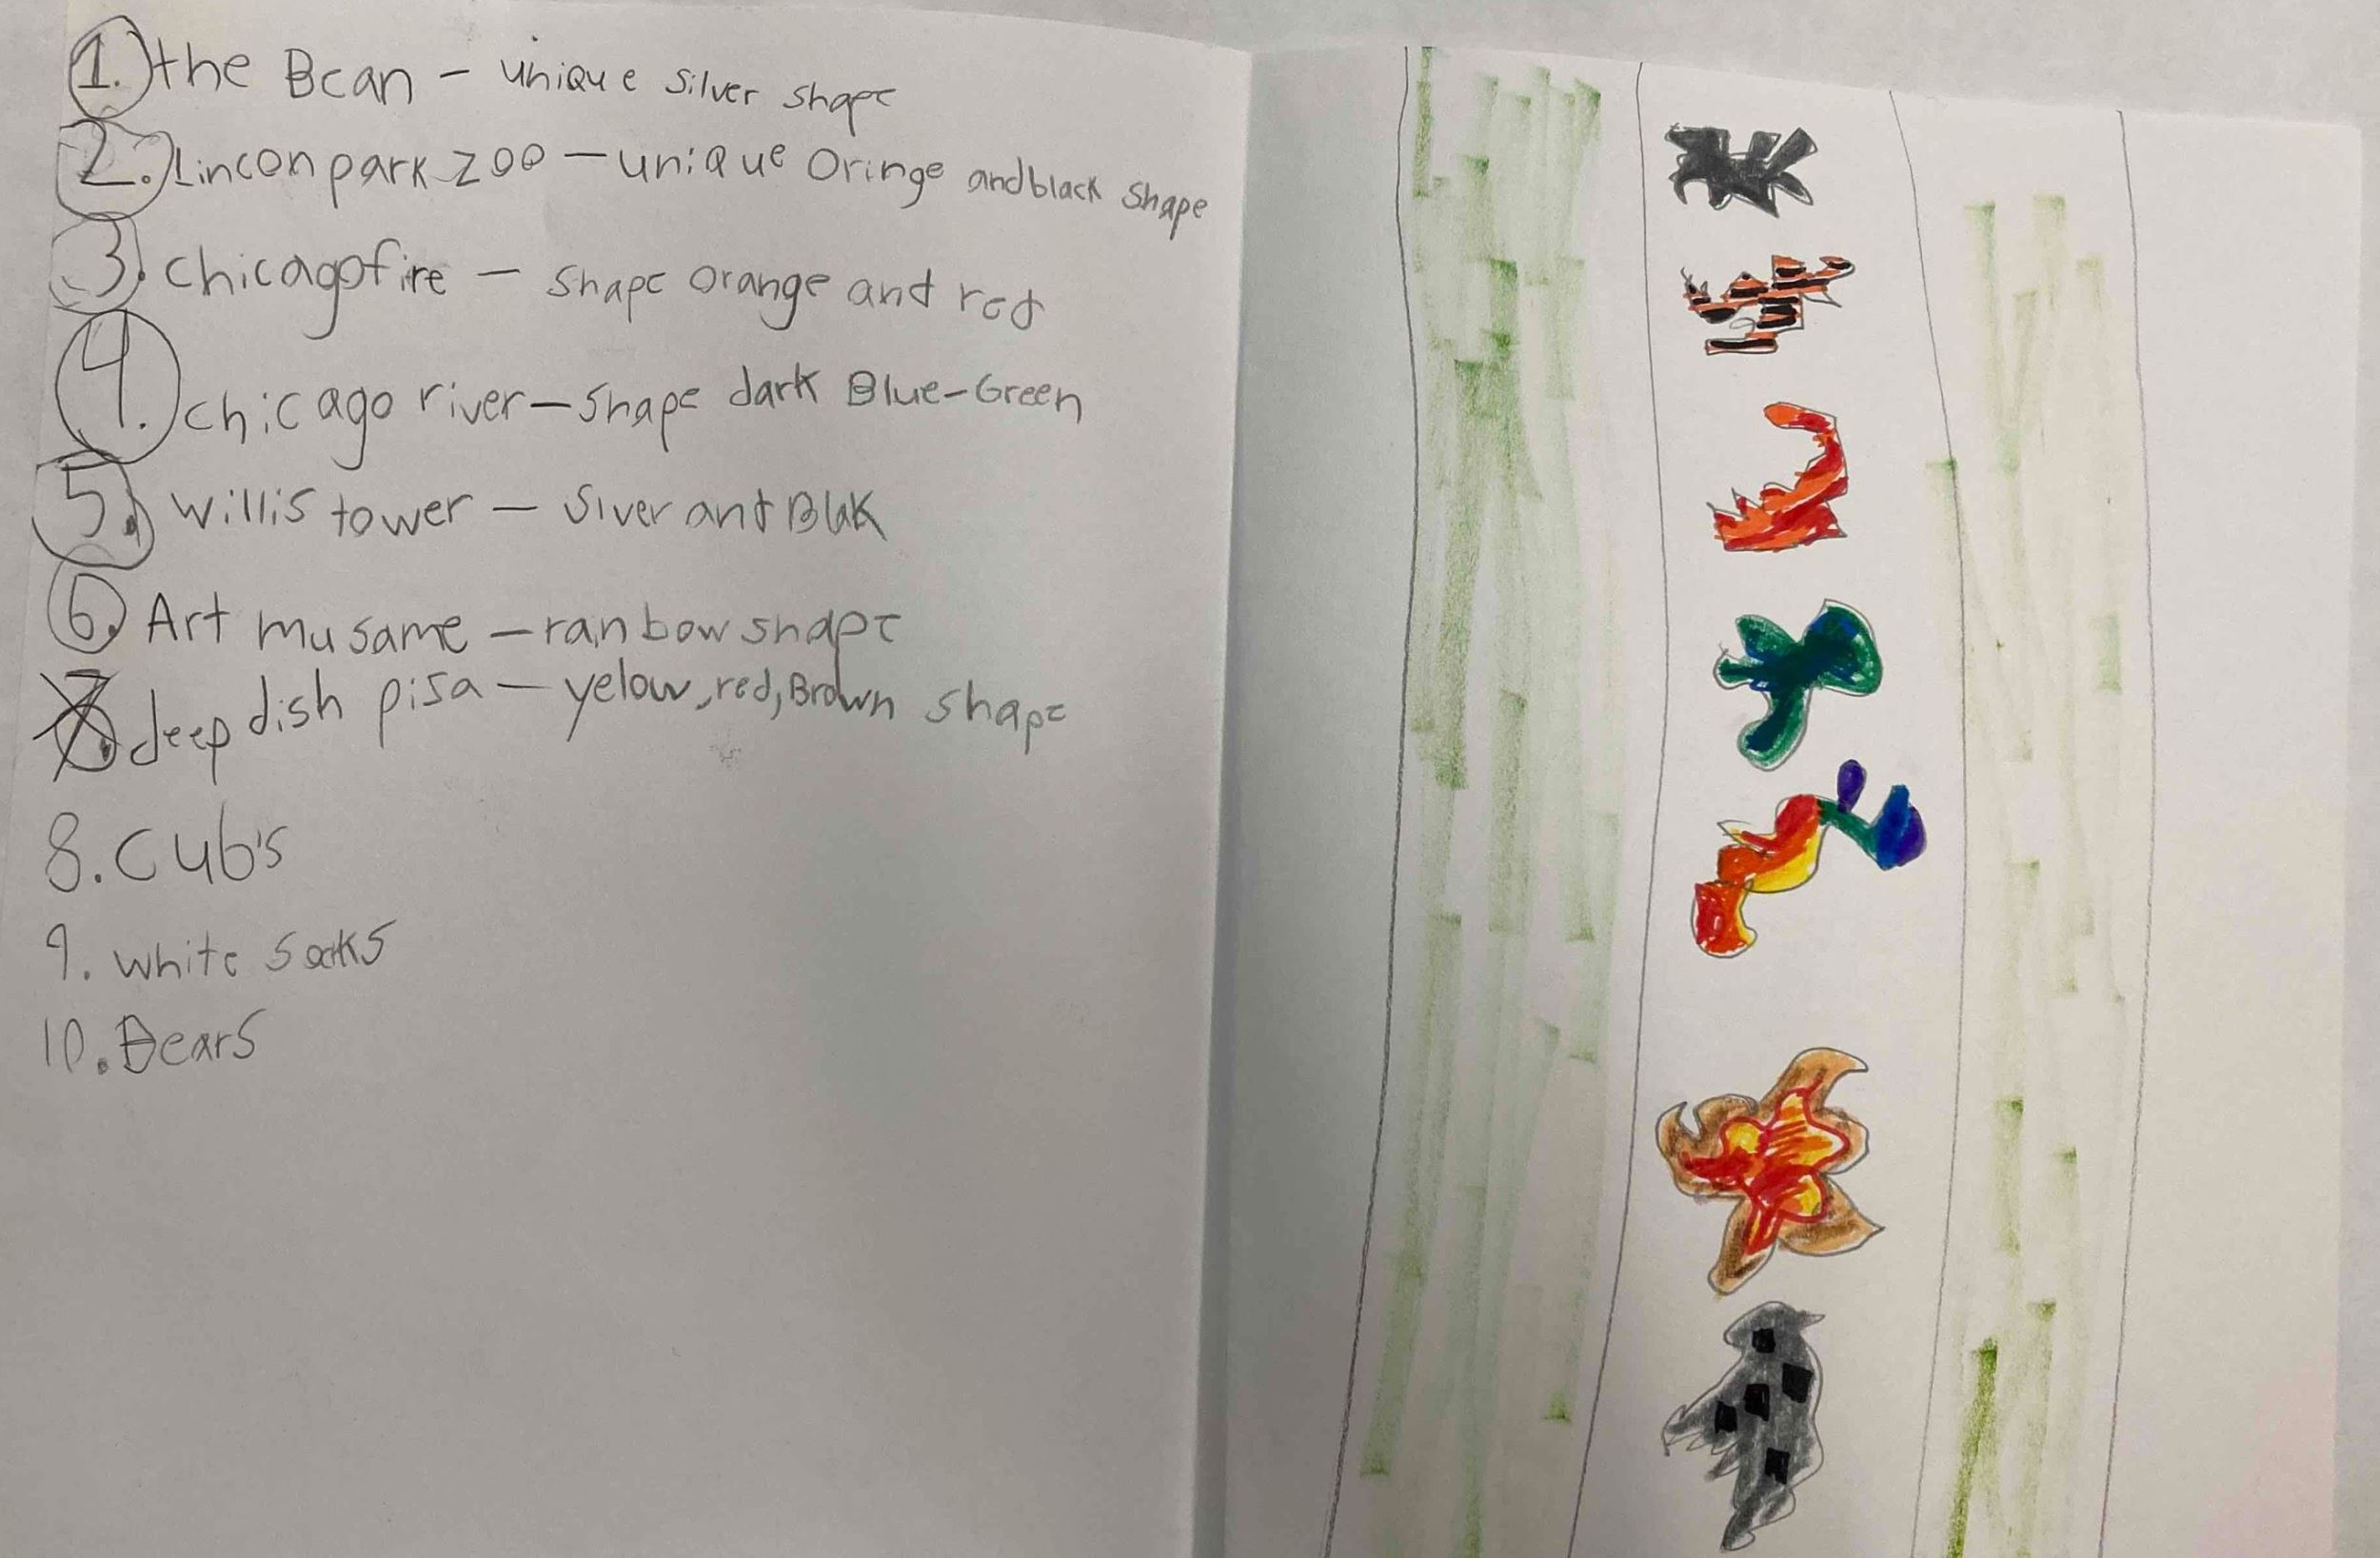 1. the Bean - unique silver shape
2. Lincon park zoo - unique Oringe and black shape
3. chicago fire - shape orange and red
4. chicago river - shape dark Blue-Green
5. willis tower - Siver and Blak
6. Art musame - ranbow shape
7. deep dish pisa - yelow, red, Brown shape
8. Cub's
9. white socks
10. Bears